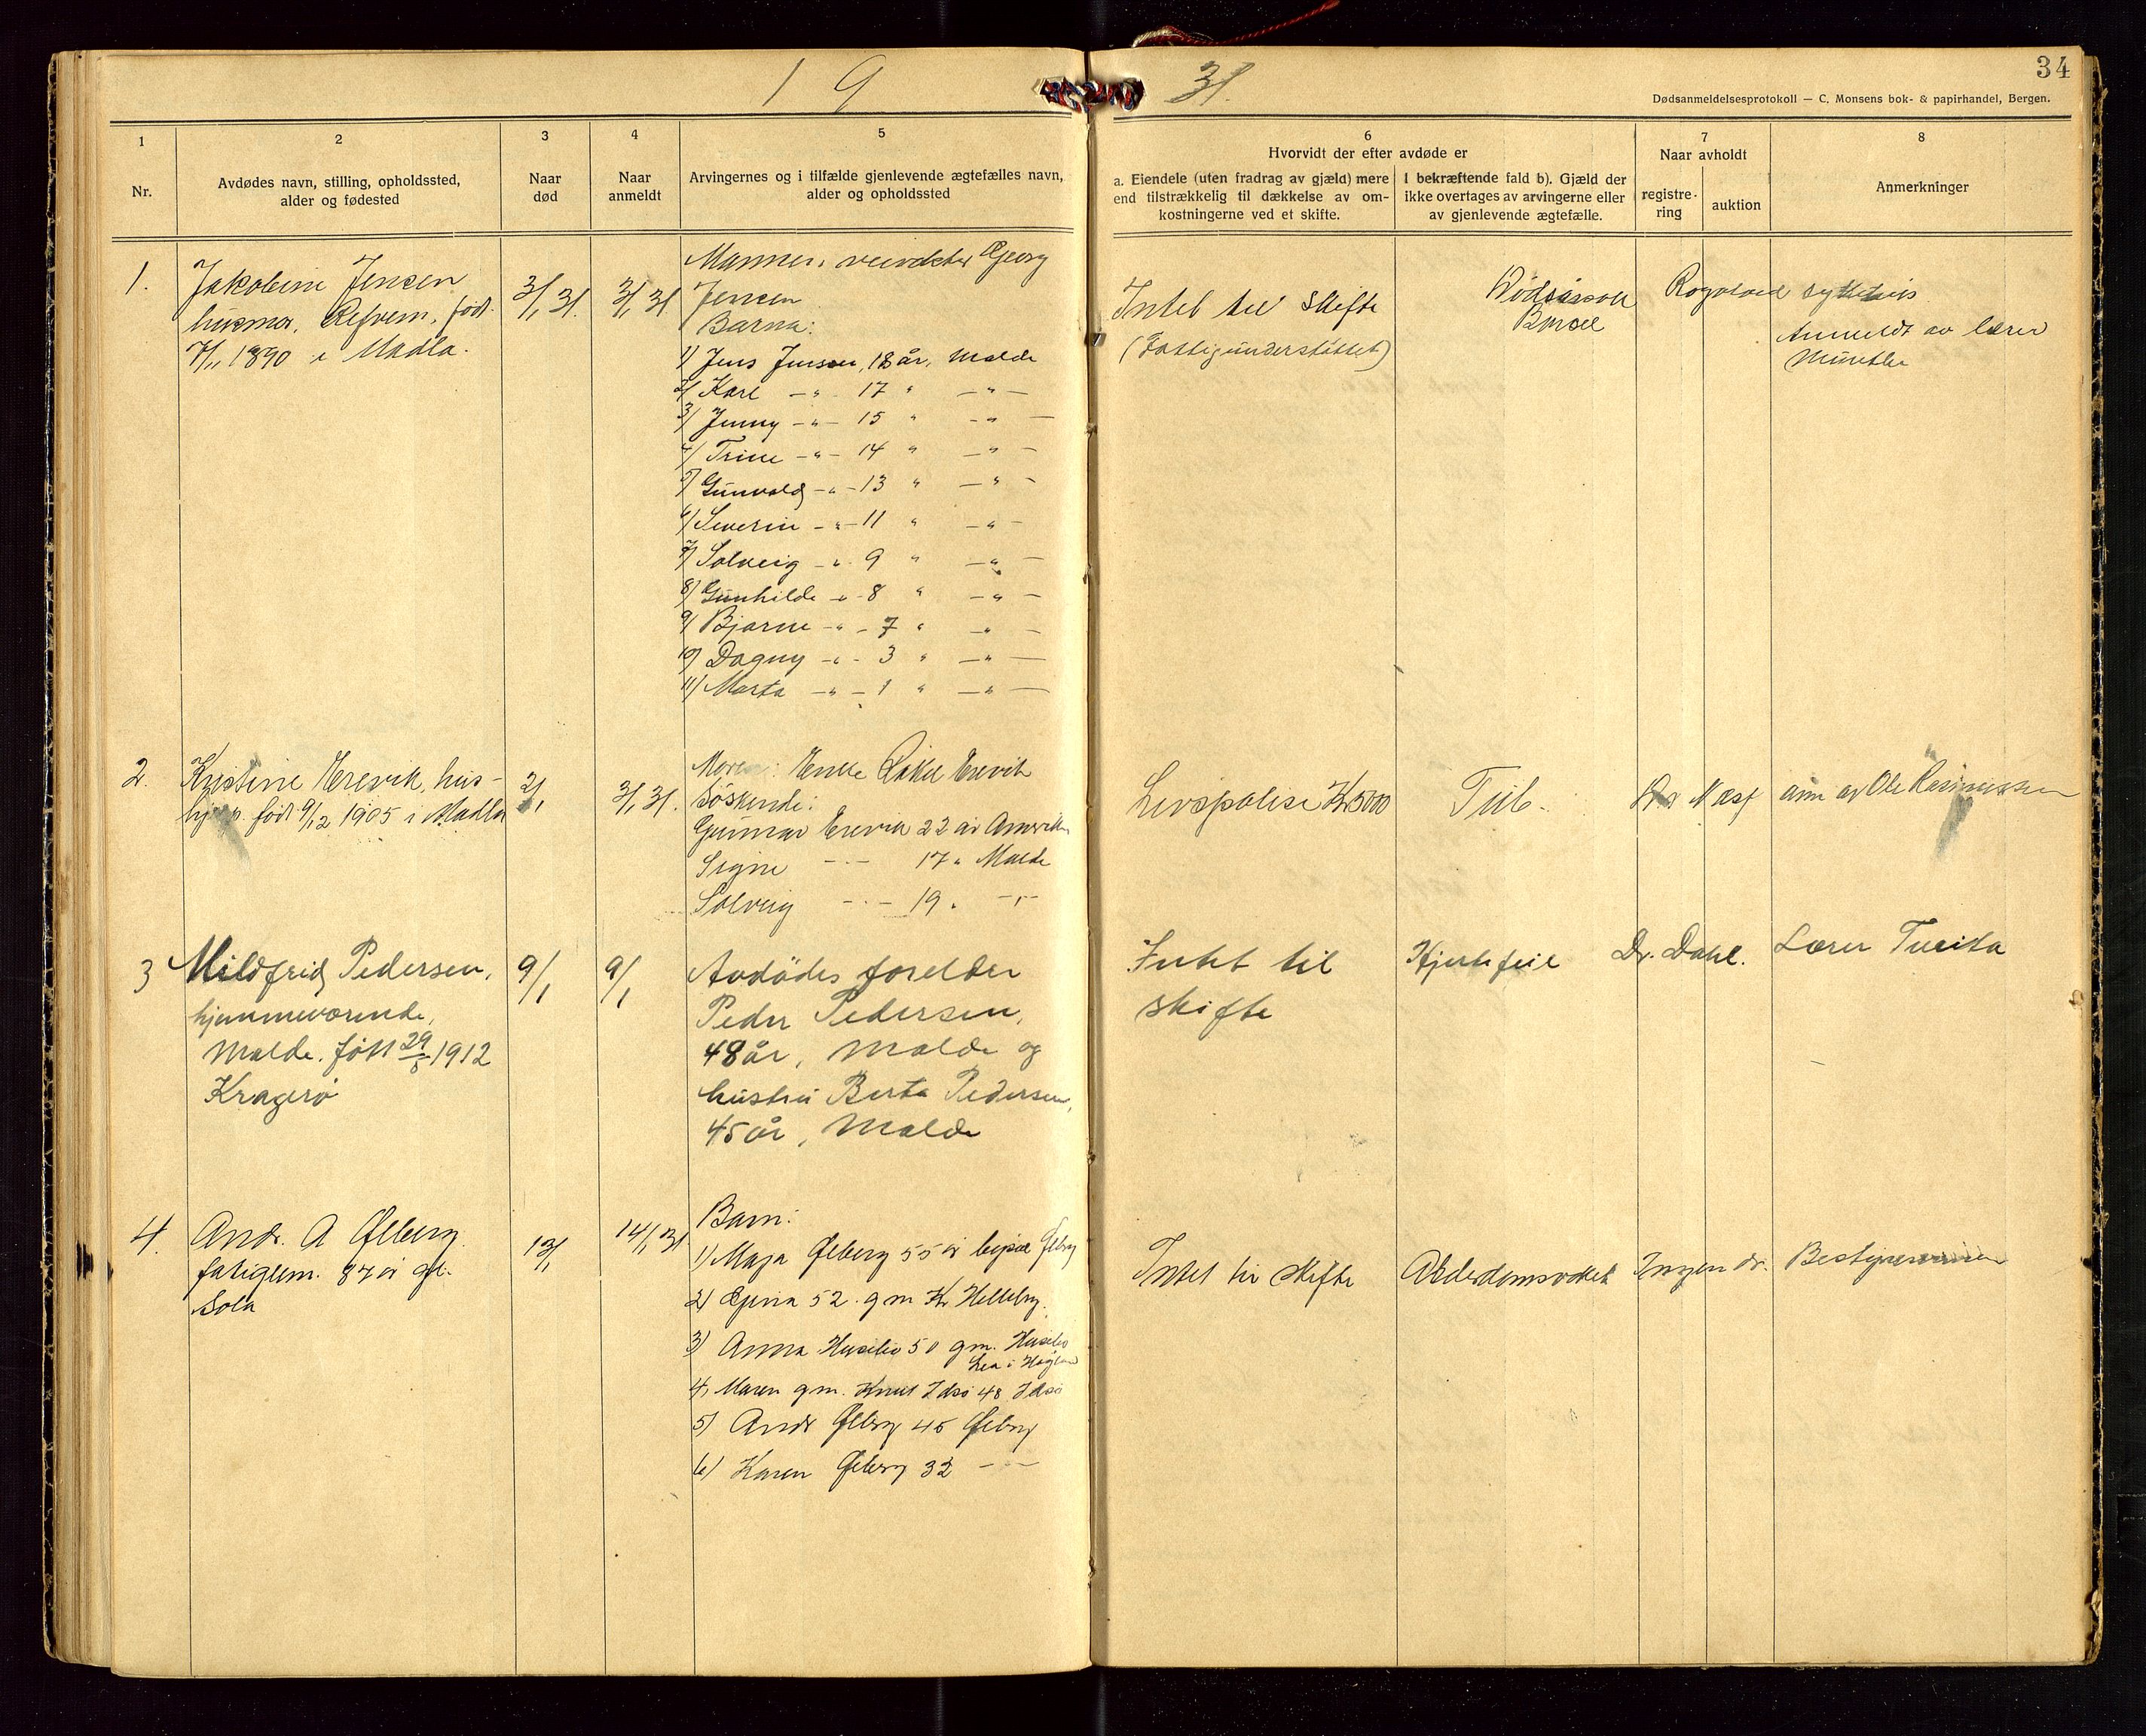 19
31.
34
Dødsanmeldelsesprotokoll — C. Monsens bok- & papirhandel, Bergen.
1
Nr.
2
Avdødes navn, stilling, opholdssted,
alder og fødested
3
Naar
død
4
Naar
anmeldt
5
Arvingernes og i tilfælde gjenlevende ægtefælles navn,
alder og opholdssted
6
Hvorvidt der efter avdøde er
a. Eiendele (uten fradrag av gjæld) mere
end tilstrækkelig til dækkelse av om-
kostningerne ved et skifte.
I bekræftende fald b). Gjæld der
ikke overtages av arvingerne eller
av gjenlevende ægtefælle.
7
Naar avholdt
registre-
ring
auktion
8
Anmerkninger
1.
Jakobine Jensen
husmor, Refvem, født
7/11 1890 i Madla.
3/1 31.
3/1 31
Mannen: Georg
Jensen
Barna:
1) Jens Jensen, 18 år, Malde
2/ Karl —"— 17 " —"—
3/ Jenny —"— 15 " —"—
4/ Trine —"— 14 " —"—
5/ Gunvald —"— 13 " —"—
6/ Severin —"— 11 " —"—
7/ Solveig —"— 9 " —"—
8/ Gunhilde —"— 8 " —"—
9/ Bjarne —"— 7 " —"—
10/ Dagny —"— 3 " —"—
11/ Marta —"— 1 " —"—
Intet til skifte
(Fattigunderstøttet)
Rogaland sykehus
Anmeldt av lærer
2.
Kristine Erevik, hus-
hj. født 9/12 1905 i Madla
2/1
3/1 31.
Moren: Enke Rakel Erevik
Søskende:
Gunnar Erevik 22 år Amerika
Signe —"— 17 " Malde
Solveig —"— 19 " —"—
Livspolise Kr 5000
Tub.
Dr Næsf
anm av Ole Rasmussen
3
Mildfrid Pedersen,
hjemmeværende,
Malde. født 29/8 1912
Kragerø
9/1
9/1
Avdødes forelder
Peder Pedersen,
48 år, Malde og
hustru Berta Pedersen,
45 år, Malde
Intet til
skifte
Hjertefeil
Dr. Dahl.
Lærer Tveita
4.
Andr. A Ølberg
fatiglem. 87 år gl.
Sola
13/1
14/1 31
Barn:
1) Maja Ølberg 55 år Ølberg
2) 52. gm Kr Helleberg.
3) Anna Husebø 50 gm. Husebø
4, Maren gm. Knut Idsø 48 Idsø
5) Andr Ølberg 45 Ølberg
6) Karen Ølberg 32 —"—
Intet til skifte
Alderdomssvækket
Ingen dr.
Bestyrerinnen